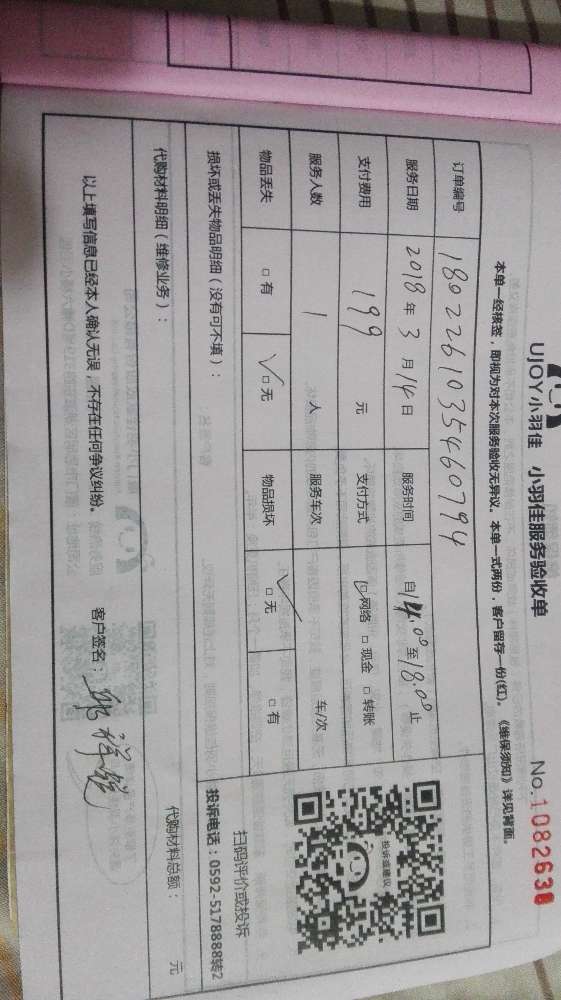 UJOY小羽佳 小羽佳服务验收单 No.1082638
本单一经核签，即视为对本次服务验收无异议。本单一式两份，客户留存一份(红)。《维保须知》详见背面。
订单编号 1802261035460794
服务日期 2018年3月14日 服务时间 自14.00至18.00止
支付费用 199 元 支付方式 □网络 □现金 □转账
服务人数 1 人 服务车次 车/次
物品丢失 □有 ✓□无 物品损坏 ✓□无 □有
投诉或建议
扫码评价或投诉
投诉电话：0592-5178888转2
损坏或丢失物品明细（没有可不填）：
代购材料明细（维修业务）： 代购材料总额： 元
以上填写信息已经本人确认无误，不存在任何争议纠纷。 客户签名：